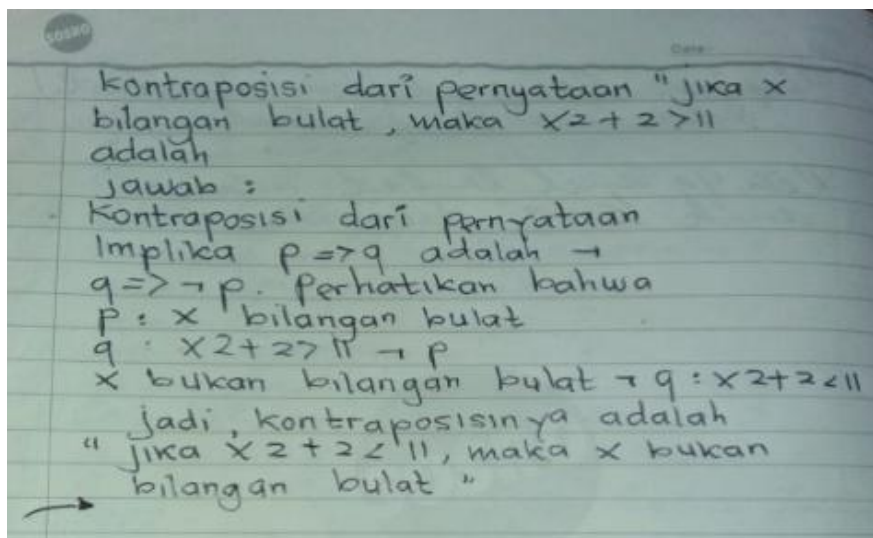 SOSRO
Date
kontraposisi dari pernyataan "jika x
bilangan bulat, maka x2 + 2 > 11
adalah
jawab :
Kontraposisi dari pernyataan
Implika p => q adalah ¬
q => ¬ p. Perhatikan bahwa
P : x bilangan bulat
q : x2 + 2 > 11 ¬ p
x bukan bilangan bulat ¬ q : x2 + 2 < 11
jadi, kontraposisinya adalah
" jika x2 + 2 < 11, maka x bukan
bilangan bulat "